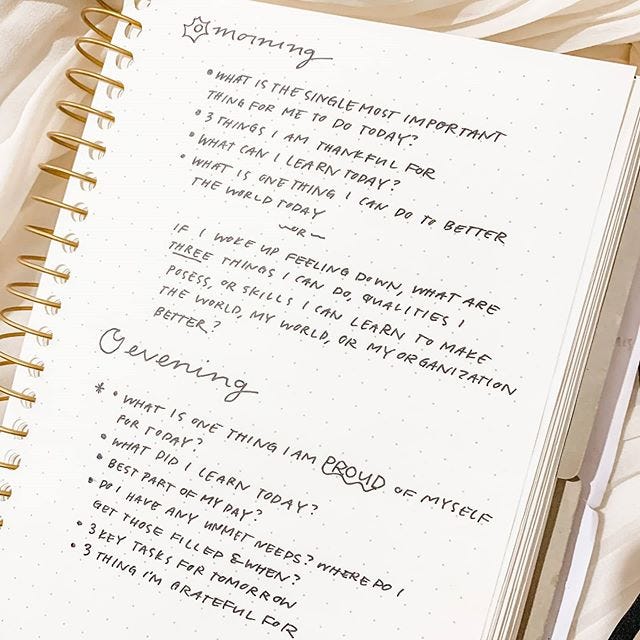 morning
• WHAT IS THE SINGLE MOST IMPORTANT
THING FOR ME TO DO TODAY?
• 3 THINGS I AM THANKFUL FOR
• WHAT CAN I LEARN TODAY?
• WHAT IS ONE THING I CAN DO TO BETTER
THE WORLD TODAY
~OR~
IF I WOKE UP FEELING DOWN, WHAT ARE
THREE THINGS I CAN DO, QUALITIES I
POSESS, OR SKILLS I CAN LEARN TO MAKE
THE WORLD, MY WORLD, OR MY ORGANIZATION
BETTER?
evening
* • WHAT IS ONE THING I AM PROUD OF MYSELF
FOR TODAY?
• WHAT DID I LEARN TODAY?
• BEST PART OF MY DAY?
• DO I HAVE ANY UNMET NEEDS? WHERE DO I
GET THOSE FILLED & WHEN?
• 3 KEY TASKS FOR TOMORROW
• 3 THING I'M GRATEFUL FOR